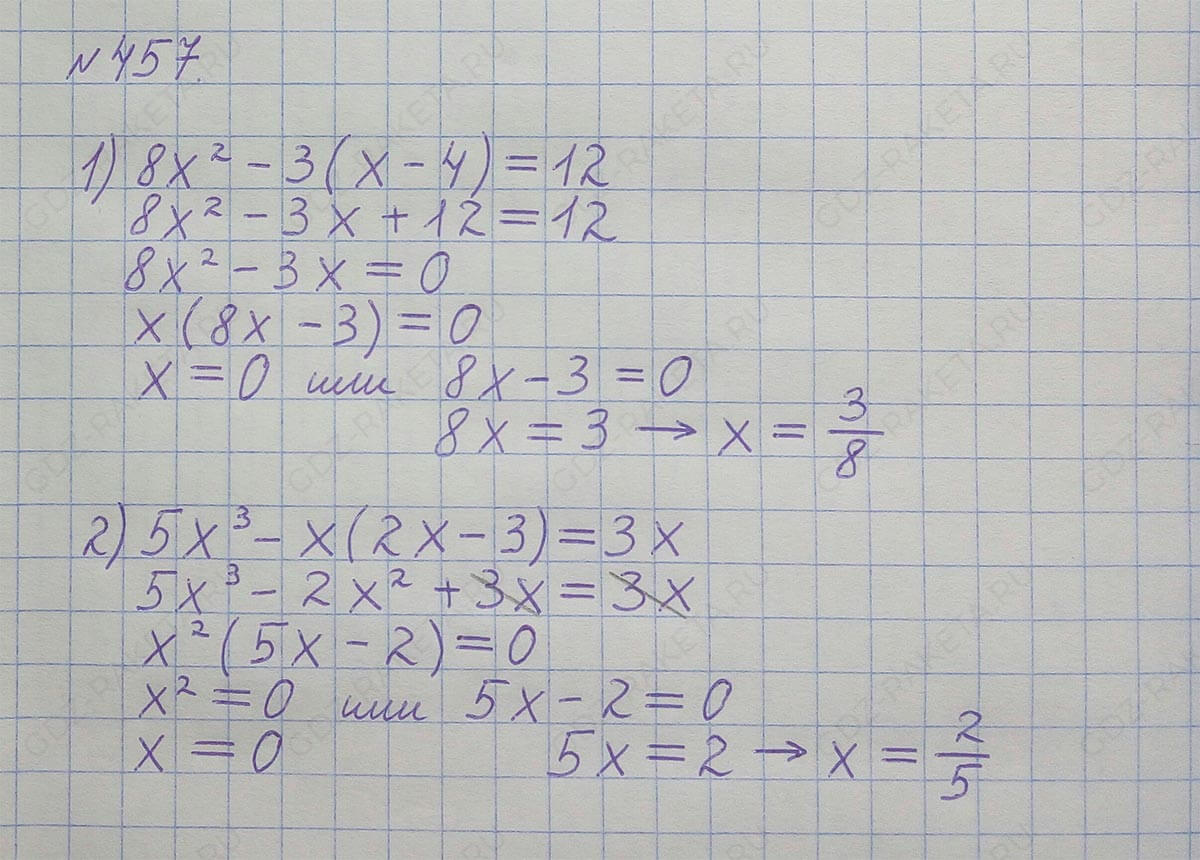 №457.
1) 8x² - 3(x - 4) = 12
8x² - 3x + 12 = 12
8x² - 3x = 0
x(8x - 3) = 0
x = 0 или 8x - 3 = 0
8x = 3 → x = 3/8
2) 5x³ - x(2x - 3) = 3x
5x³ - 2x² + 3x = 3x
x²(5x - 2) = 0
x² = 0 или 5x - 2 = 0
x = 0 5x = 2 → x = 2/5
GDZ-RAKETA.RU